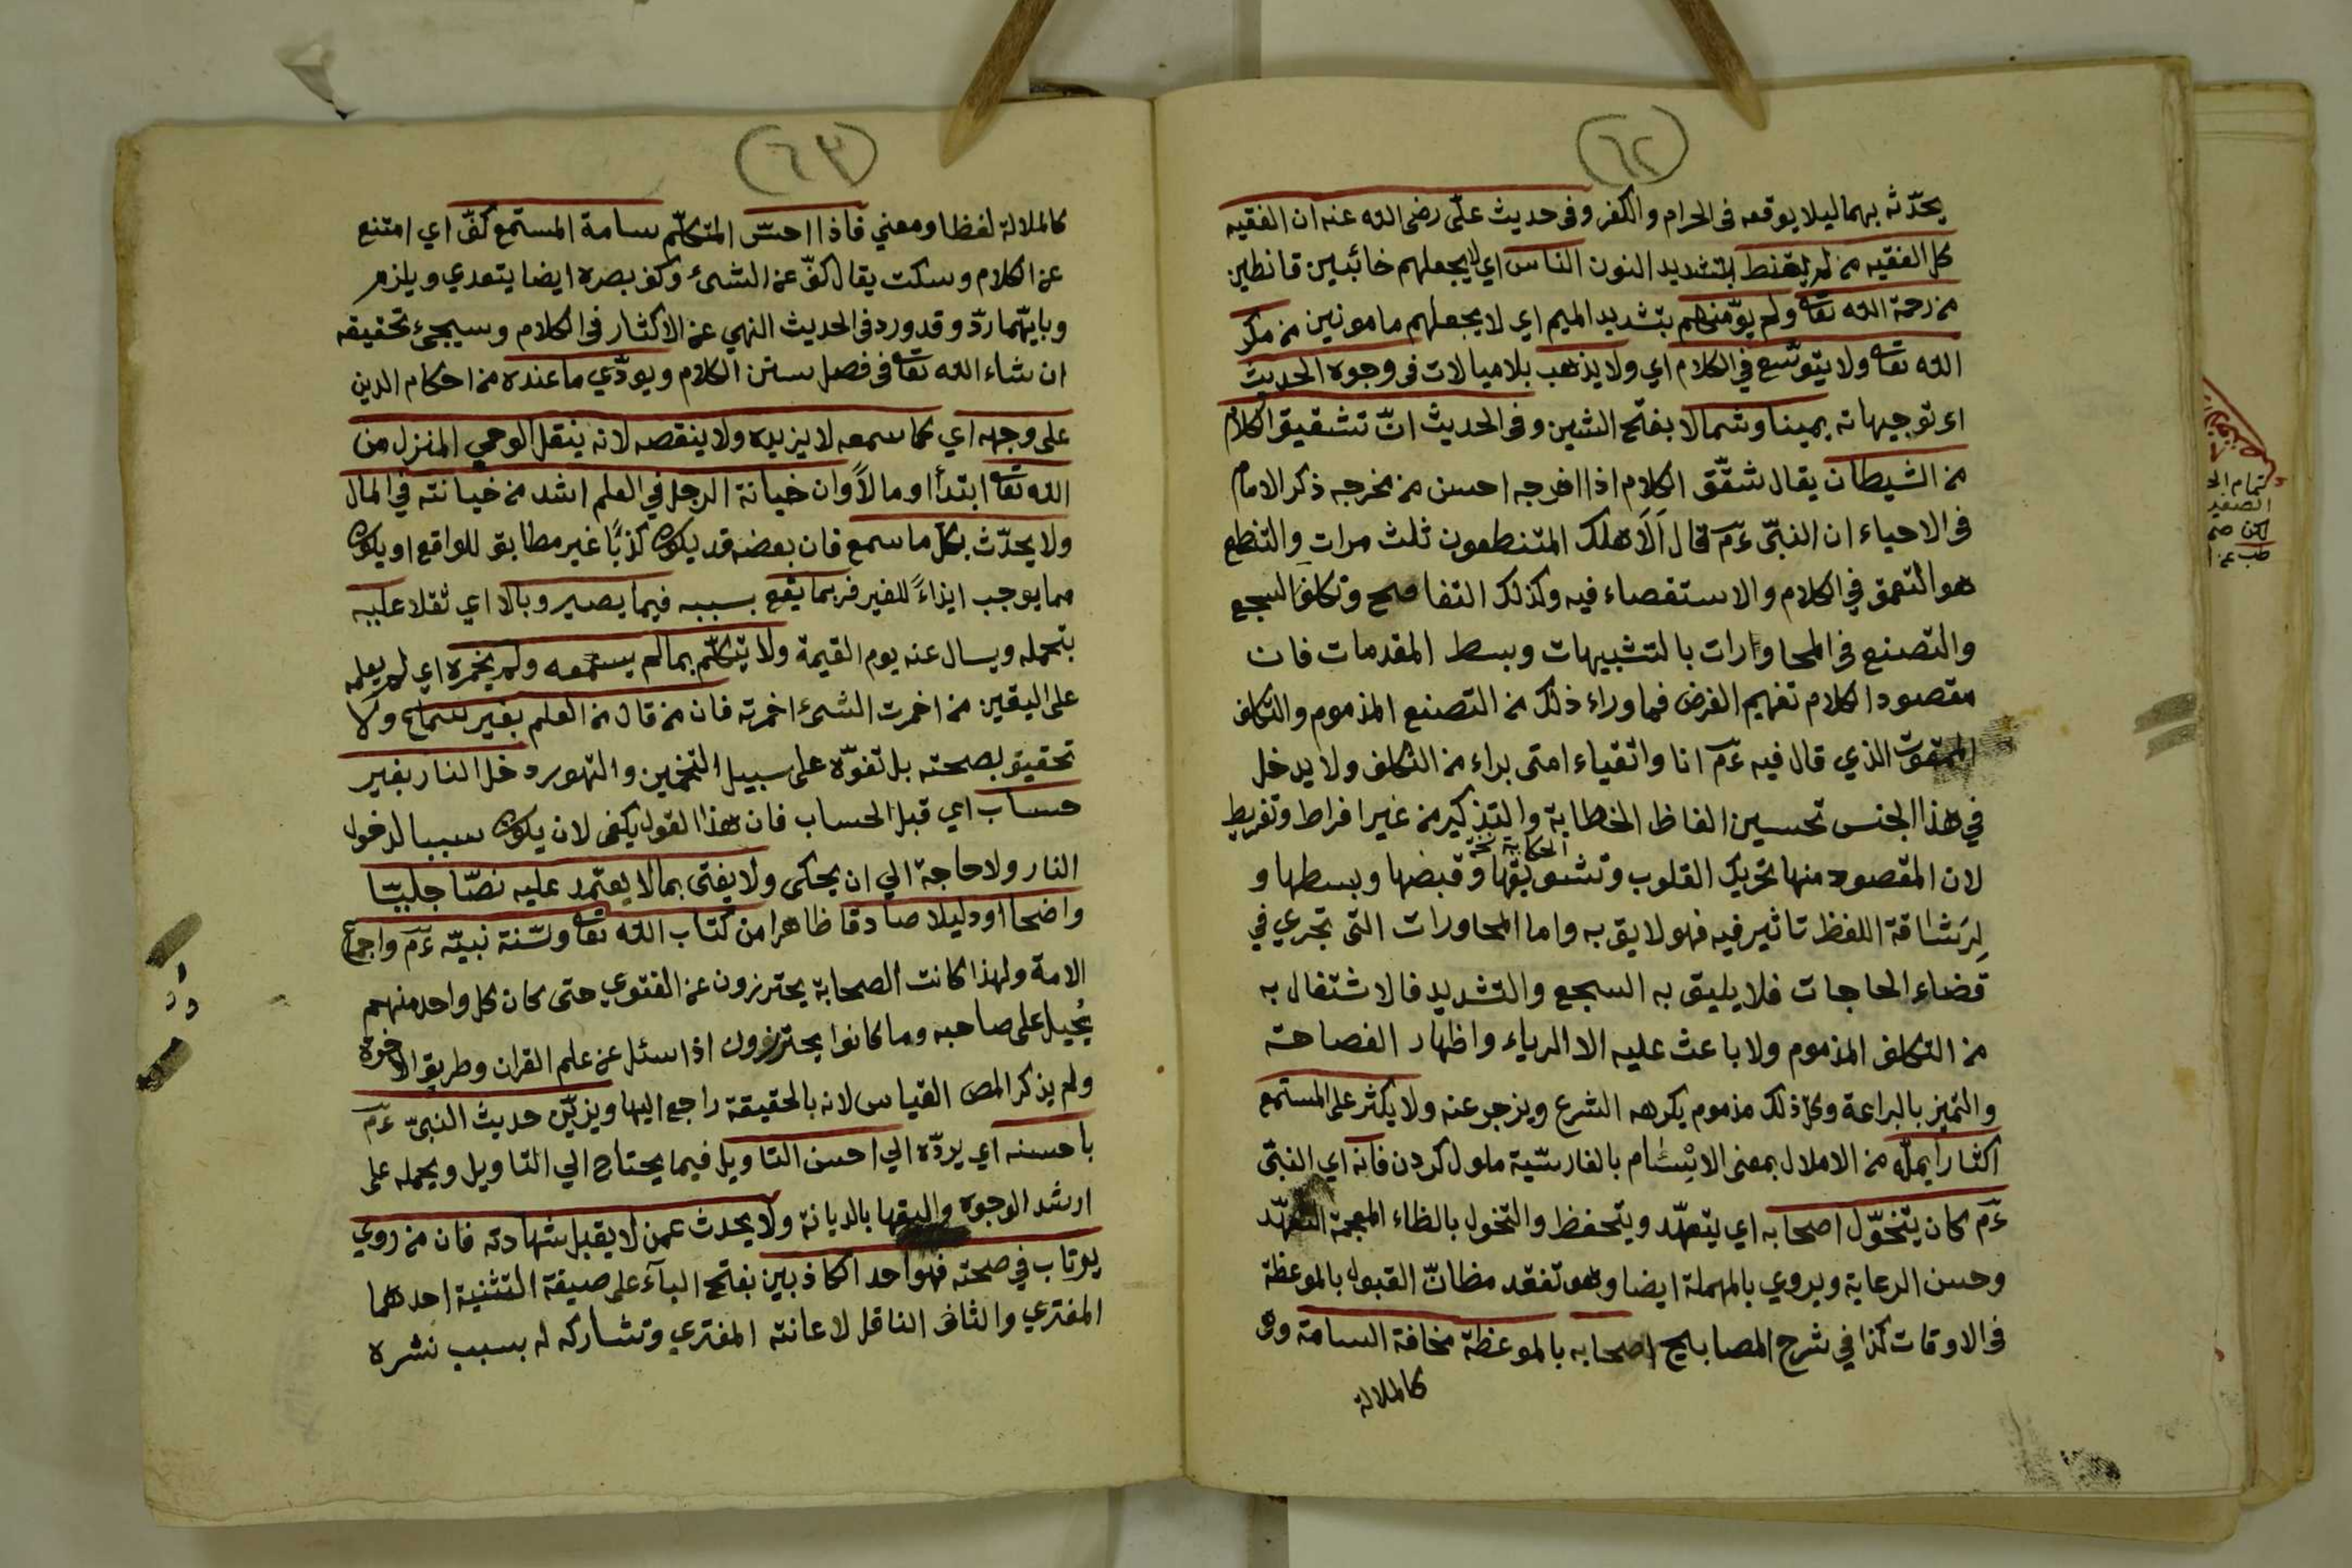 (٦٢)
يحدّثه بهما ليلا يوقعه فى الحرام والكفر وفى حديث علىّ رضى الله عنه ان الفقيه
كل الفقيه من لم يقنط بتشديد النون الناس اي لا يجعلهم خائبين قانطين
من رحمة الله تعا ولم يؤمنهم بتشديد الميم اي لا يجعلهم مامونين من مكر
الله تعا ولا يتوسّع في الكلام اي ولا يذهب بلا مبالات فى وجوه الحديث
اى توجيهاته يمينا وشمالا بفتح الشين وفى الحديث انّ تشقيق الكلام
من الشيطان يقال شقّق الكلام اذا اخرجه احسن من مخرجه ذكر الامام
فى الاحياء ان النبىّ ءمّ قال اَلَا هلك المتنطعون ثلث مرات والتنطع
هو التعمق في الكلام والاستقصاء فيه وكذلك التفاصح وتكلف السجع
والتصنع فى المحاورات بالتشبيهات وبسط المقدمات فان
مقصود الكلام تفهيم الغرض فما وراء ذلك من التصنع المذموم والتكلف
الممقوت الذي قال فيه ءمّ انا واتقياء امتى براء من التكلف ولا يدخل
في هذا الجنس تحسين الفاظ الخطابة والتذكير من غير افراط وتفريط
الحكاية نخه
لان المقصود منها تحريك القلوب وتشويقها وقبضها وبسطها و
لِرَشاقة اللفظ تاثير فيه فهو لايق به واما المحاورات التى تجري في
قضاء الحاجات فلا يليق به السجع والتشديد فالاشتغال به
من التكلف المذموم ولا باعث عليه الا الرياء واظهار الفصاحة
والتميز بالبراعة وكل ذلك مذموم يكرهه الشرع ويزجر عنه ولا يكثر على المستمع
اكثارا يملّه من الاملال بمعنى الابْسَام بالفارسيّة ملول كردن فانه اي النبىّ
ءمّ كان يتخوّل اصحابه اي يتعهّد ويتحفظ والتخول بالظاء المعجمة التعهّد
وحسن الرعاية ويروي بالمهملة ايضا وهو تفقد مظانّ القبول بالموعظة
فى الاوقات كذا في شرح المصابيح اصحابه بالموعظة مخافة السامة وهى
كالملالة
تمام الح
الصغير
لكن صح
طب عن ا
(٦٣)
كالملالة لفظا ومعني فاذا احسّ المتكلّم سامة المستمع كفّ اي امتنع
عن الكلام وسكت يقال كفّ عن الشئ وكف بصره ايضا يتعدي ويلزم
وبابهما ردّ وقد ورد فى الحديث النهي عن الاكثار فى الكلام وسيجئ تحقيقه
ان شاء الله تعا فى فصل سنن الكلام ويودّي ما عنده من احكام الدين
على وجهه اي كما سمعه لا يزيده ولا ينقصه لانه ينقل الوحي المنزل من
الله تعا ابتدأ او مالاً وان خيانة الرجل في العلم اشد من خيانته في المال
ولا يحدّث بكل ما سمع فان بعضه قد يكون كذبًا غير مطابق للواقع او يكون
مما يوجب ايذاءً للغير فربما يقع بسببه فيما يصير وبالا اي ثقلا عليه
بتحمله ويسال عنه يوم القيمة ولا يتكلّم بما لم يسمعه ولم يخمره اي لم يعلمه
على اليقين من اخمرت الشئ اخمرته فان من قال من العلم بغير سماع ولا
تحقيق بصحته بل تفوّه على سبيل التخمين والتهور دخل النار بغير
حساب اي قبل الحساب فان هذا القول يكفى لان يكون سببا لدخول
النار ولا حاجة الي ان يحكى ولا يفتى بما لا يعتمد عليه نصّا جليّا
واضحا او دليلا صادقا ظاهرا من كتاب الله تعا وسنّة نبيّه ءمّ واجماع
الامة ولهذا كانت الصحابة يحترزون عن الفتوي حتى كان كل واحد منهم
يُحيل على صاحبه وما كانوا يحترزون اذا سئل عن علم القران وطريق الاخرة
ولم يذكر المص القياس لانه بالحقيقة راجع اليها ويزيّن حديث النبىّ ءمّ
باحسنه اي يردّه الي احسن التاويل فيما يحتاج الي التاويل ويحمله على
ارشد الوجوه واليقها بالديانة ولا يحدث عمن لا يقبل شهادته فان من روي
يرتاب في صحته فهو احد الكاذبين بفتح البآء على صيغة التثنية احدهما
المفتري والثانى الناقل لاعانته المفتري وتشاركه له بسبب نشره